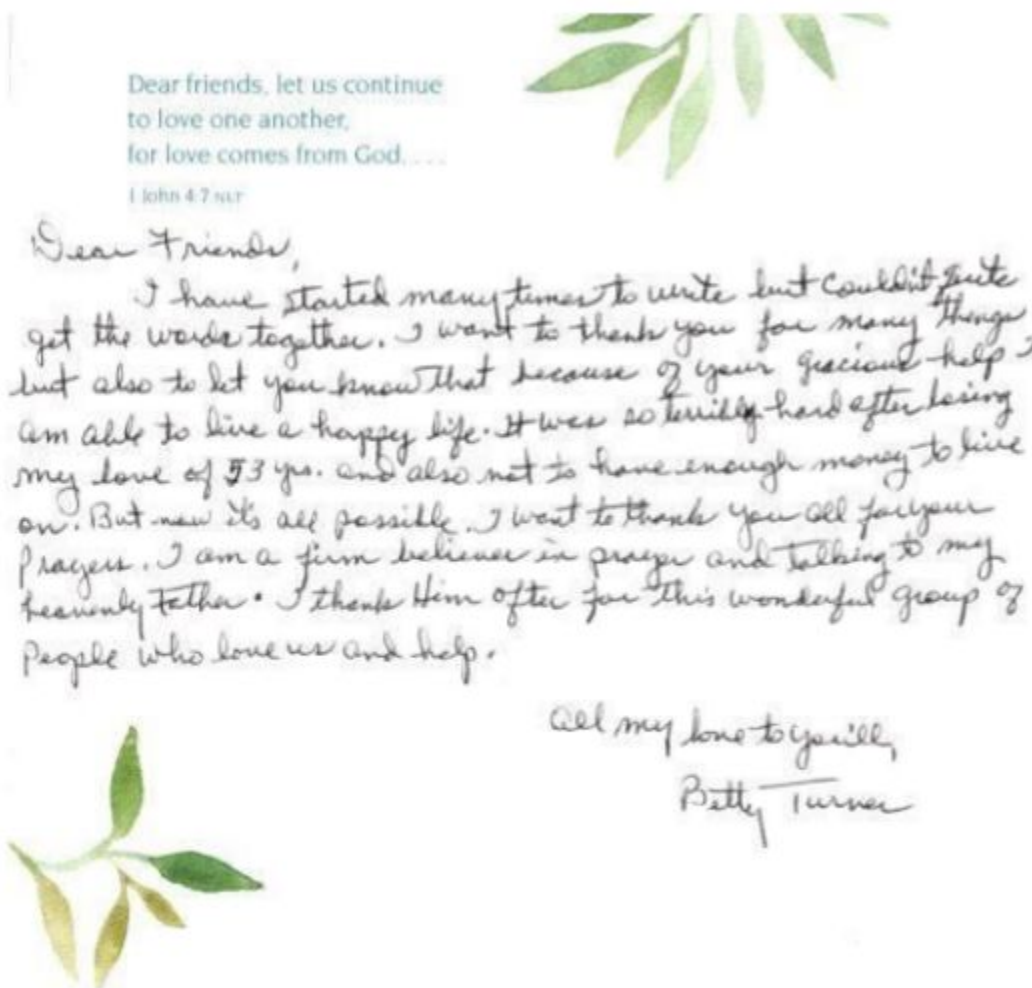 Dear friends, let us continue
to love one another,
for love comes from God. . . .
1 John 4:7 NLT
Dear Friends,
I have started many times to write but couldn't quite
get the words together. I want to thank you for many things
but also to let you know that because of your gracious help I
am able to live a happy life. It was so terribly hard after losing
my love of 53 yrs. and also not to have enough money to live
on. But now it's all possible. I want to thank you all for your
Prayers. I am a firm believer in prayer and talking to my
heavenly Father. I thank Him often for this wonderful group of
People who love us and help.
All my love to you all,
Betty Turner